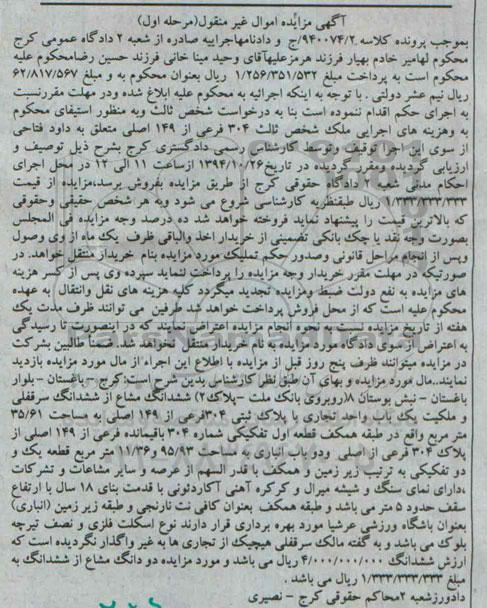 آگهی مزایده اموال غیر منقول(مرحله اول)
بموجب پرونده کلاسه ۹۴۰۰۷۴/۲/ج و دادنامهاجراییه صادره از شعبه ۲ دادگاه عمومی کرج
محکوم لهامیر خادم بهیار فرزند هرمزعلیهآقای وحید مینا خانی فرزند حسین رضامحکوم علیه
محکوم است به پرداخت مبلغ ۱/۲۵۶/۳۵۱/۵۳۲ ریال بعنوان محکوم به و مبلغ ۶۲/۸۱۷/۵۶۷
ریال نیم عشر دولتی . با توجه به اینکه اجرائیه به محکوم علیه ابلاغ شده ودر مهلت مقررنسبت
به اجرای حکم اقدام ننموده است بنا به درخواست شخص ثالث وبه منظور استیفای محکوم
به وهزینه های اجرایی ملک شخص ثالث ۳۰۴ فرعی از ۱۴۹ اصلی متعلق به داود فتاحی
از سوی این اجرا توقیف وتوسط کارشناس رسمی دادگستری کرج بشرح ذیل توصیف و
ارزیابی گردیده ومقرر گردیده در تاریخ ۱۳۹۴/۱۰/۲۶ ازساعت ۱۱ الی ۱۲ در محل اجرای
احکام مدنی شعبه ۲ دادگاه حقوقی کرج از طریق مزایده بفروش برسد،مزایده از قیمت
۱/۳۳۳/۳۳۳/۳۳۳ ریال طبقنظریه کارشناسی شروع می شود وبه هر شخص حقیقی وحقوقی
که بالاترین قیمت را پیشنهاد نماید فروخته خواهد شد ده درصد وجه مزایده فی المجلس
بصورت وجه نقد یا چک بانکی تضمینی از خریدار اخذ والباقی ظرف یک ماه از وی وصول
وپس از انجام مراحل قانونی وصدور حکم تملیک مورد مزایده بنام خریداز منتقل خواهد. در
صورتیکه در مهلت مقرر خریدار وجه مزایده را پرداخت ننماید سپرده وی پس از کسر هزینه
های مزایده به نفع دولت ضبط ومزایده تجدید میگردد کلیه هزینه های نقل وانتقال به عهده
محکوم علیه است که از محل فروش پرداخت خواهد شد طرفین می توانند ظرف مدت یک
هفته از تاریخ مزایده نسبت به نحوه انجام مزایده اعتراض نمایند که در اینصورت تا رسیدگی
به اعتراض از سوی دادگاه مورد مزایده به نام خریدار منتقل نخواهد شد. ضمناً طالبین بشرکت
در مزایده میتوانند ظرف پنج روز قبل از مزایده با اطلاع این اجراء از مال مورد مزایده بازدید
نمایند..مال مورد مزایده و بهای آن طبق نظر کارشناس بدین شرح است:کرج – باغستان – بلوار
باغستان – نبش بوستان ۸(روبروی بانک ملت –پلاک۲) ششدانگ مشاع از ششدانگ سرقفلی
و ملکیت یک باب واحد تجاری با پلاک ثبتی ۳۰۴فرعی از ۱۴۹ اصلی به مساحت ۳۵/۶۱
متر مربع واقع در طبقه همکف قطعه اول تفکیکی شماره ۳۰۴ باقیمانده فرعی از ۱۴۹ اصلی از
پلاک ۳۰۴ فرعی از اصلی ودو باب انباری به مساحت ۹۵/۹۳ و۱۱/۳۶ متر مربع قطعه یک و
دو تفکیکی به ترتیب زیر زمین و همکف با قدر السهم از عرصه و سایر مشاعات و تشرکات
،دارای نمای سنگ و شیشه میرال و کرکره آهنی آکاردئونی با قدمت بنای ۱۸ سال با ارتفاع
سقف حدود ۵ متر می باشد و طبقه همکف بعنوان کافی نت نارنجی و طبقه زیر زمین (انباری)
بعنوان باشگاه ورزشی عرشیا مورد بهره برداری قرار دارند نوع اسکلت فلزی و نصف تیرچه
بلوک می باشد و به گفته مالک سرقفلی هیچیک از تجاری ها به غیر واگذار نگردیده است که
ارزش ششدانگ ۴/۰۰۰/۰۰۰/۰۰۰ ریال می باشد و مورد مزایده دو دانگ مشاع از ششدانگ به
مبلغ ۱/۳۳۳/۳۳۳/۳۳۳ ریال می باشد .
دادورزشعبه ۲محاکم حقوقی کرج – نصیری